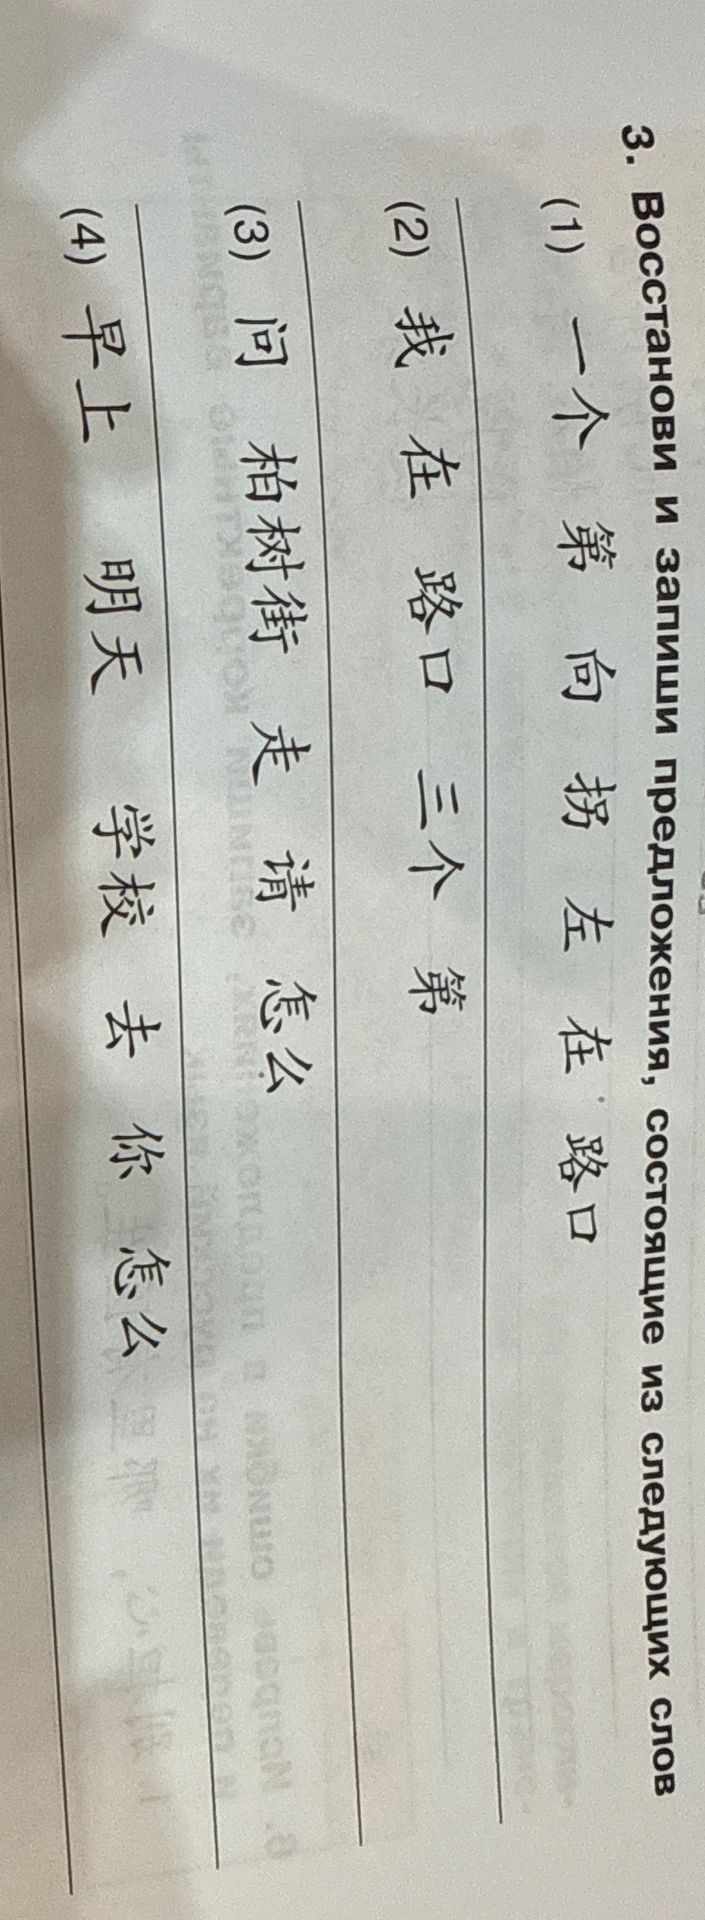 3. Восстанови и запиши предложения, состоящие из следующих слов
(1) 一个 第 向 拐 左 在 路口
(2) 我 在 路口 三个 第
(3) 问 柏树街 走 请 怎么
(4) 早上 明天 学校 去 你 怎么